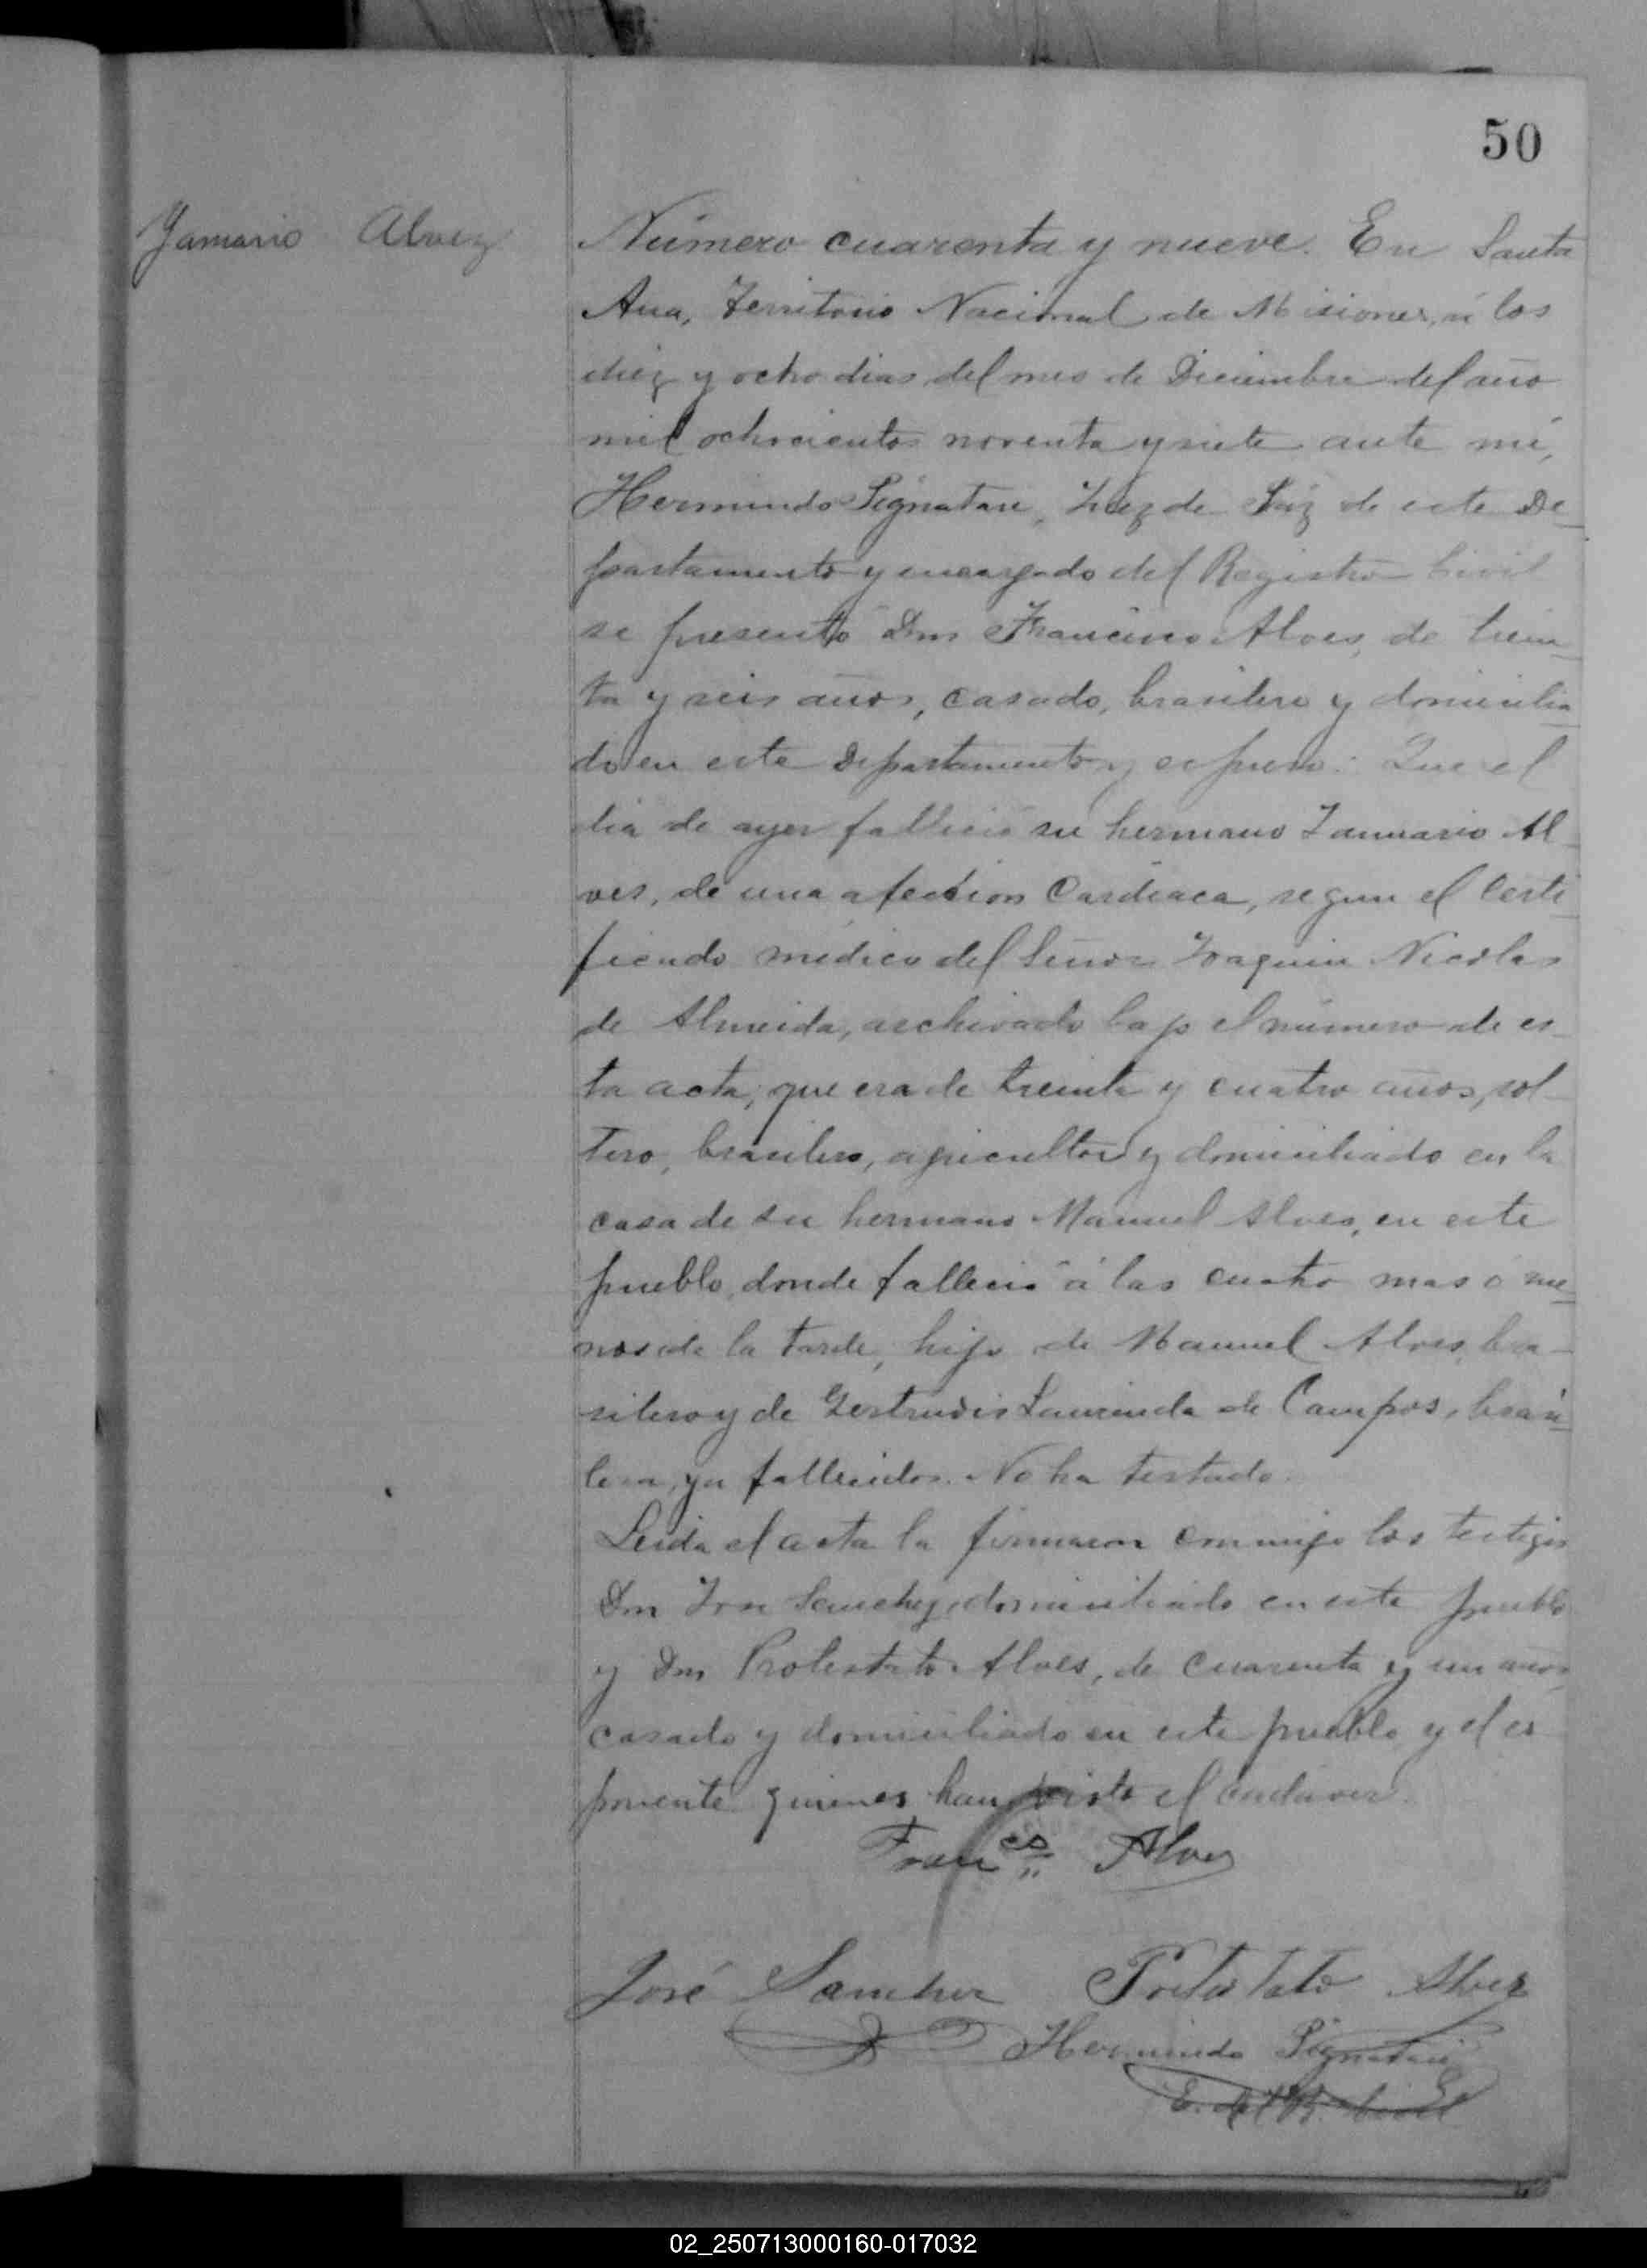 50
Januario Alvez
Número cuarenta y nueve. En Santa
Ana, Territorio Nacional de Misiones, á los
diez y ocho dias del mes de Diciembre del año
mil ochocientos noventa y siete ante mi,
Hermindo Pignatari, Juez de Paz de este De-
partamento y encargado del Registro Civil
se presentó Don Francisco Alves, de trein-
ta y seis años, casado, brasilero y domicilia-
do en este Departamento y espuso: Que el
dia de ayer falleció su hermano Januario Al-
ves, de una afeccion Cardiaca, segun el Certi-
ficado médico del Señor Joaquin Nicolas
de Almeida, archivado bajo el número de es-
ta acta; que era de treinta y cuatro años, sol-
tero, brasilero, agricultor y domiciliado en la
casa de su hermano Manuel Alves, en este
pueblo, donde falleció á las cuatro mas ó me-
nos de la tarde, hijo de Manuel Alves, bra-
silero y de Gertrudis Laurinda de Campos, brasi-
lera, ya fallecidos. No ha testado.
Leida el acta la firmaron conmigo los testigos
Don José Sanchez, domiciliado en este pueblo
y Don Protestato Alves, de cuarenta y un años,
casado y domiciliado en este pueblo y el es-
ponente quienes han visto el cadáver.
Franco Alves
José Sanchez Protestato Alvez
Hermindo Pignatari
E. del R. Civil
02_250713000160-017032